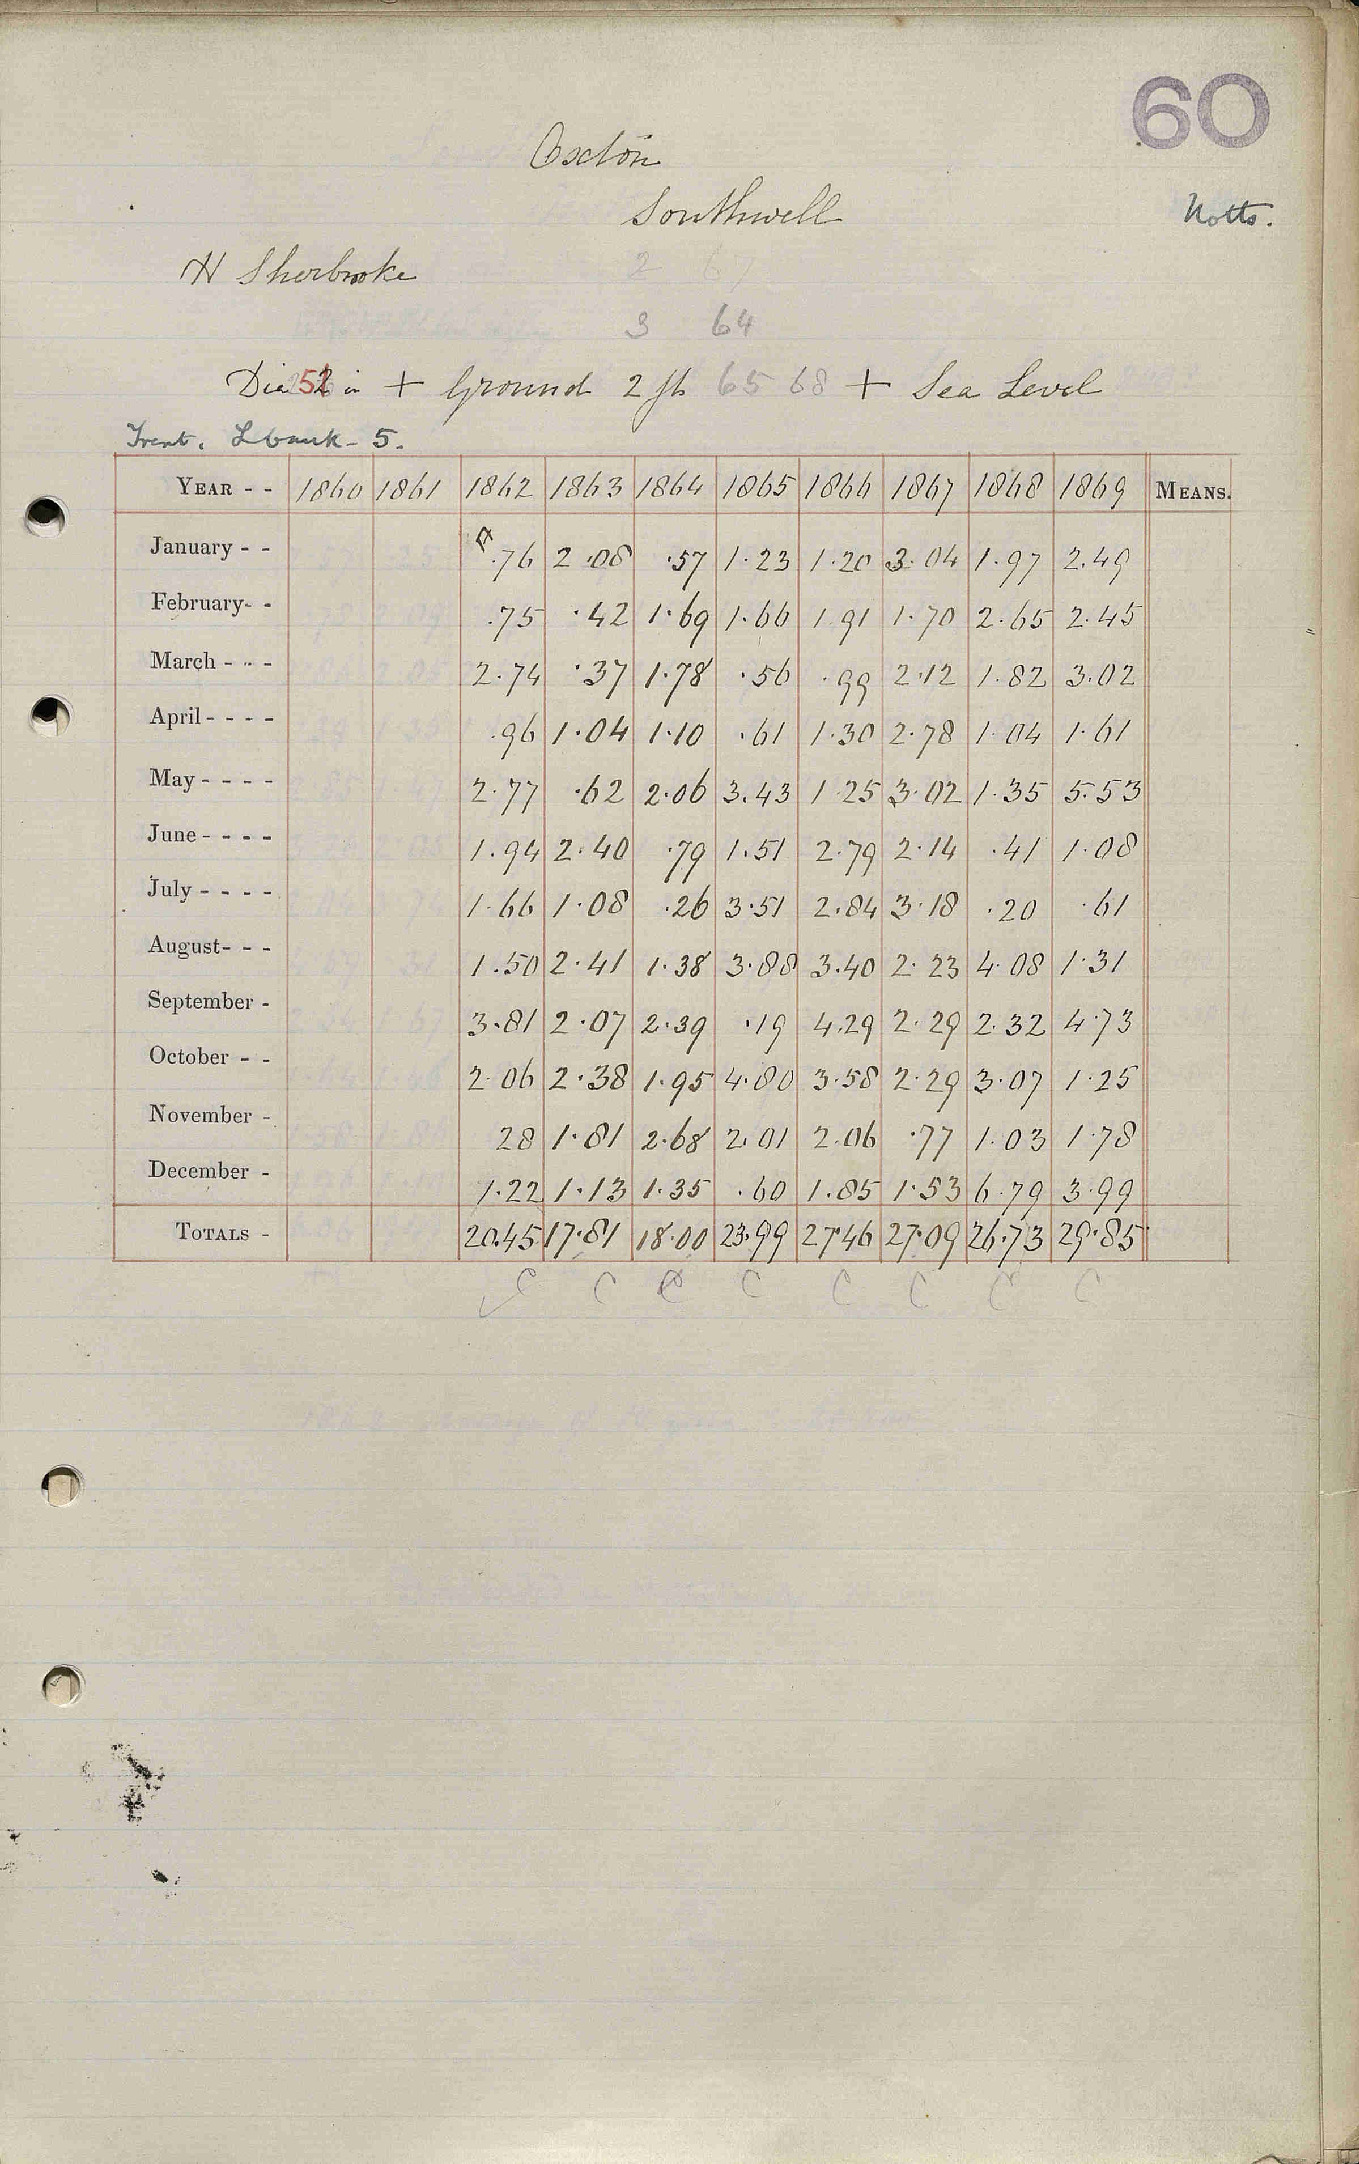 60
Oxton
Southwell
Notts.
H Sherbrooke
2 67
3 64
Dia in + Ground 2 ft 65 68 + Sea Level
Trent. L bank - 5.
YEAR - - 1860 1861 1862 1863 1864 1865 1866 1867 1868 1869 MEANS.
January - - .76 2.08 .57 1.23 1.20 3.04 1.97 2.49
February- - .75 .42 1.69 1.66 1.91 1.70 2.65 2.45
March - - - 2.74 .37 1.78 .56 .99 2.12 1.82 3.02
April - - - - .96 1.04 1.10 .61 1.30 2.78 1.04 1.61
May - - - - 2.77 .62 2.06 3.43 1 25 3.02 1.35 5.53
June - - - - 1.94 2.40 .79 1.51 2.79 2.14 .41 1.08
July - - - - 1.66 1.08 .26 3.51 2.84 3.18 .20 .61
August- - - 1.50 2.41 1.38 3.88 3.40 2.23 4.08 1.31
September - 3.81 2.07 2.39 .19 4.29 2.29 2.32 4.73
October - - 2.06 2.38 1.95 4.80 3.58 2.29 3.07 1.25
November - 28 1.81 2.68 2.01 2.06 .77 1.03 1.78
December - 1.22 1.13 1.35 .60 1.85 1.53 6.79 3.99
TOTALS - 20.45 17.81 18.00 23.99 27.46 27.09 26.73 29.85
C C C C C C C C